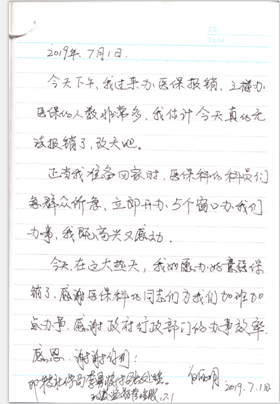 2019年7月1日
今天下午,我过来办医保报销,三楼办
医保的人数非常多,我估计今天真的无
法报销了,改天吧。
正当我准备回家时,医保科的科员们
急群众所急,立即开办5个窗口办我们
办事,我既高兴又感动。
今天在这大热天,我如愿办好医保
销了,感谢医保科的同志们为我们加班加
点办事,感谢政府行政部门的办事效率
感恩,谢谢你们!
2019.7.1日